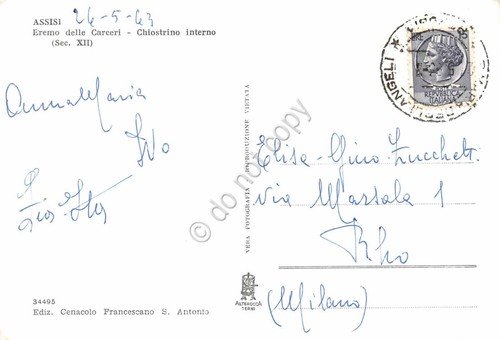 ASSISI 26-5-63
Eremo delle Carceri - Chiostrino interno
(Sec. XII)
AnnaMaria
Ivo
34495
Ediz. Cenacolo Francescano S. Antonio
VERA FOTOGRAFIA RIPRODUZIONE VIETATA
ALTEROCCA
TERNI
REPVBBLICA
ITALIANA
ANGELI
Elisa-Gino Zucchetti
via Marsala 1
Rho
(Milano)
© do not copy